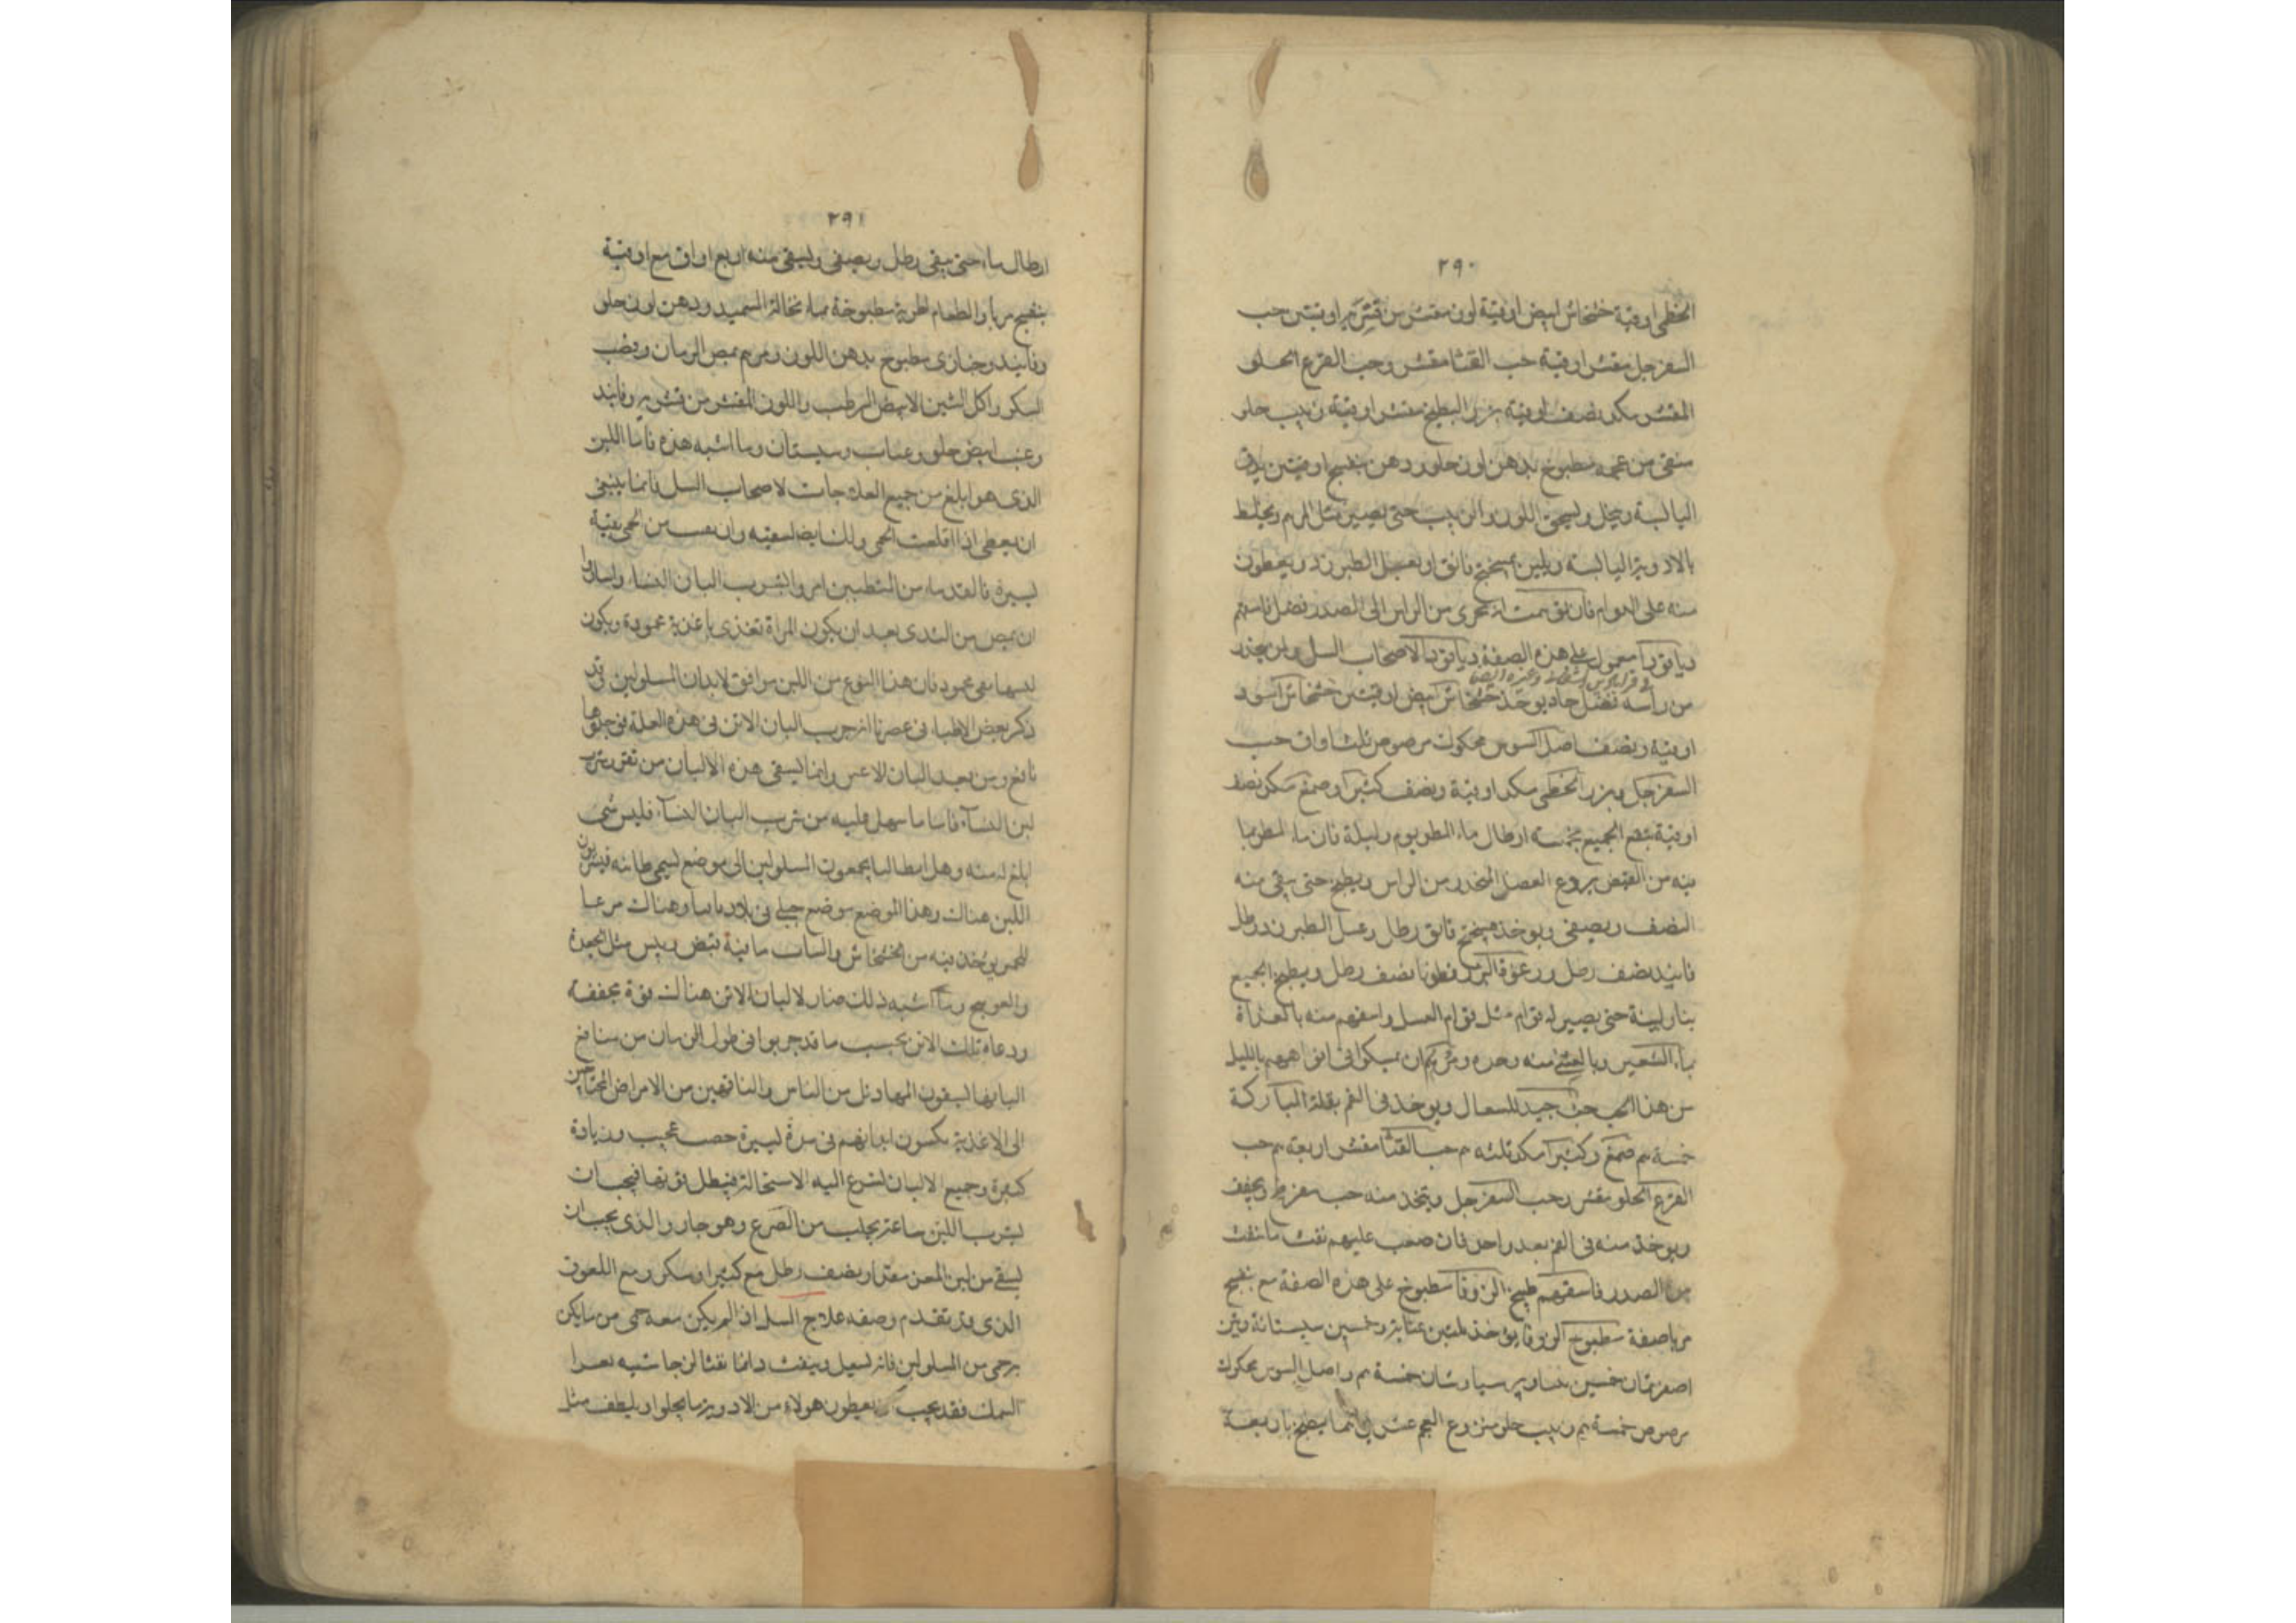 ٢٩٠
الخطمى اوقية خشخاش ابيض اوقية لوز مقشر من قشريه اوقيتين حب
السفرجل مقشر اوقية حب القثا مقشر وحب القرع الحلو
المقشر مكد نصف اوقية بزر البطيخ مقشر اوقية زبيب حلو
منقى من عجمه مطبوخ بدهن لوز حلو ودهن بنفسج اوقيتين يدق
اليابسة وينخل ويسحق اللوز والزبيب حتى يصير مثل المرهم ويخلط
بالادوية اليابسة ويلين بميبختج فائق او بعسل الطبرزد ويعطون
منه على الدوام فان توهمت انه يجرى من الراس الى الصدر فضل فاسقهم
دياقودا معمول على هذه الصفة دياقودا لاصحاب السل ولمن ينحدر
من راسه فضل حاد يوخذ خشخاش ابيض اوقيتين خشخاش اسود
اوقية ونصف اصل السوس محكوك مرضوض ثلث اواق حب
السفرجل وبزر الخطمى مكد اوقية ونصف كثيرا وصمغ مكد نصف
اوقية ينقع الجميع بخمسة ارطال ماء المطر يوم وليلة فان ماء المطر بما
فيه من القبض يردع الفضل المنحدر من الراس ويطبخ حتى يبقى منه
النصف ويصفى ويوخذ ميبختج فائق رطل وعسل الطبرزد رطل
فانيد نصف رطل ورغوة البزرقطونا نصف رطل ويطبخ الجميع
بنار لينة حتى يصير له قوام مثل قوام العسل واسقهم منه بالغداة
بماء الشعير وبالعشى منه وحده ومرهم ان يمسكوا فى افواههم بالليل
من هذا الحب حب جيد للسعال ويوخذ فى الفم بقلة المباركة
خمسة دم صمغ وكثيرا مكد ثلثه دم حب القثا مقشر اربعه دم حب
القرع الحلو مقشر وحب السفرجل ويتخذ منه حب مفرطح ويجفف
ويوخذ منه فى الفم بعد واحد فان صعب عليهم نفث ما نفث
من الصدر فاسقهم طبيخ الزوفا مطبوخ على هذه الصفة مع بنفسج
مربا صفة مطبوخ الزوفا يوخذ ثلثين عنابة وخمسين سبستانة وتين
اصفر ثمان خمسين برسياوشان خمسة دم واصل السوس محكوك
مرضوض خمسة دم زبيب حلو منزوع العجم عشر دراهم يطبخ باربعة
٢٩١
ارطال ماء حتى يبقى رطل ويصفى ويسقى منه اربع اواق مع اوقية
بنفسج مربا والطعام اطرية مطبوخة بماء نخالة السميد ودهن لوز حلو
وفانيد وخبازى مطبوخ بدهن اللوز ومرهم بمص الرمان وقضب
السكر واكل التين الابيض الرطب واللوز المقشر من قشريه وفانيد
وعنب ابيض حلو وعناب وسبستان وما اشبه هذه فاما اللبن
الذى هو ابلغ من جميع العلاجات لاصحاب السل فانما ينبغى
ان يعطى اذا اقلعت الحمى ولك ايضا تسقيه وان بقيت من الحمى بقية
يسيرة فالقدماء من المتطببين امروا بشرب البان النساء واشاروا
ان يمص من الثدى بعد ان يكون المراة تغذى باغذية محمودة ويكون
لبنها نقى محمود فان هذا النوع من اللبن موافق لابدان المسلولين قد
ذكر بعض الاطباء فى عصرنا انه جرب البان الاتن فى هذه العلة فوجدها
نافع ومن بعد البان الاعنز وانما يسقى هذه الالبان من تقزز شرب
لبن النساء فاما ما سهل عليه من شرب البان النساء فليس شى
ابلغ له منه وهل ايطاليا يجمعون السلولين الى موضع يسمى طابيه فيشربون
اللبن هناك وهذا الموضع موضع جبلى فى بلاد يابسا وهناك مرعا
للحمير يؤخذ فيه من الخشخاش والنبات ما فية قبض ويبس مثل الجعدة
والعوسج وما اشبه ذلك صار لالبان الاتن هناك قوة مجففة
ورعاة تلك الاتن بحسب ما قد جربوا فى طول الزمان من منافع
البانها يسقون المهازيل من الناس والناقهين من الامراض المحتاجين
الى الاغذية يكسون ابدانهم فى مدة يسيرة خصب عجيب وزيادة
كبيرة وجميع الالبان تسرع اليه الاستحالة فيبطل قوتها فيجب ان
يشرب اللبن ساعة يحلب من الضرع وهو حار والذى يجب ان
يسقى من لبن المعز مقدار نصف رطل مع كثيرا وسكر ومع اللعوق
الذى قد تقدم وصفه علاج السل اذا لم يكن معه حمى من ما يكن
به حمى من المسلولين فانه يسعل وينفث دائما نفثا لزجا شبيه بغرا
السمك فقد يجب يعطون هولاء من الادوية ما يجلو او يلطف مثل